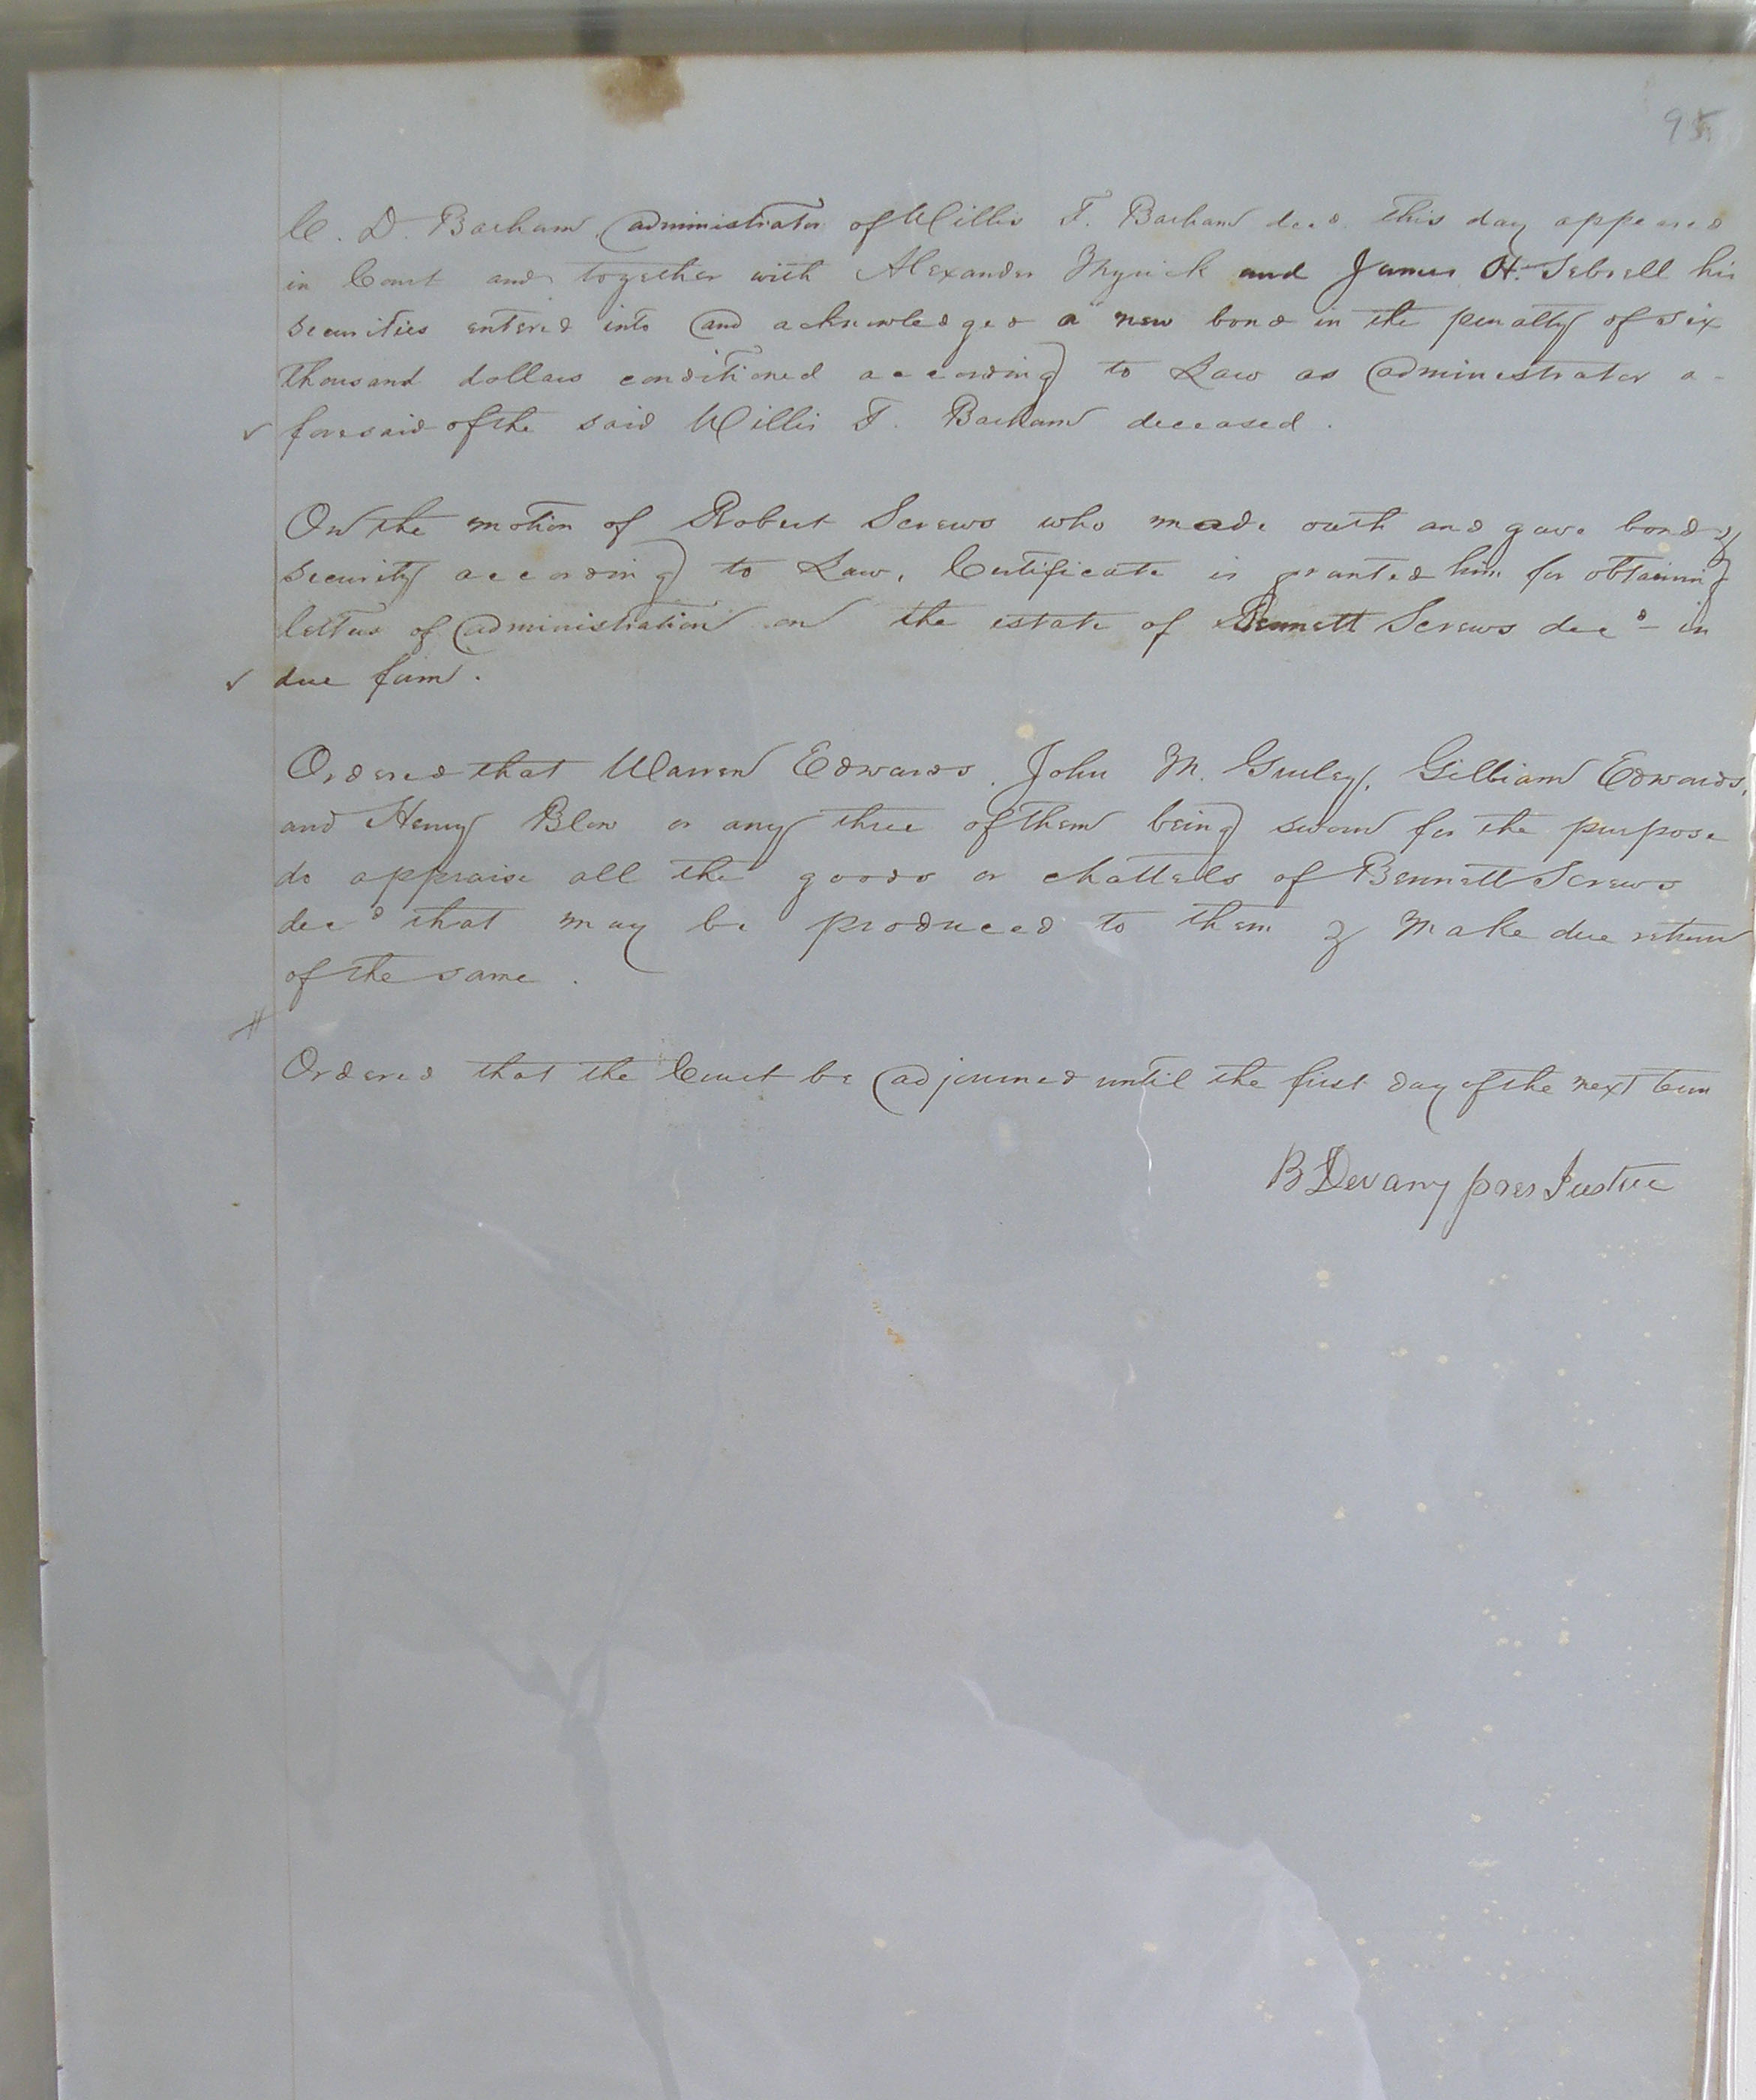 95
C. D. Barham administrator of Willis T. Barham decd. this day appeared
in Court and together with Alexander Myrick and James H. Sebrell his
securities entered into and acknowledged a new bond in the penalty of six
thousand dollars conditioned according to Law as administrator a-
foresaid of the said Willis T. Barham deceased.
On the motion of Robert Screws who made oath and gave bond &
security according to Law, Certificate is granted him for obtaining
letters of administration on the estate of Bennett Screws decd in
due form.
Ordered that Warren Edwards, John M. Gurley, Gilliam Edwards,
and Henry Blow or any three of them being sworn for the purpose
do appraise all the goods or chattels of Bennett Screws
decd that may be produced to them & make due return
of the same.
Ordered that the Court be adjourned until the first day of the next term
B Devany pres Justice